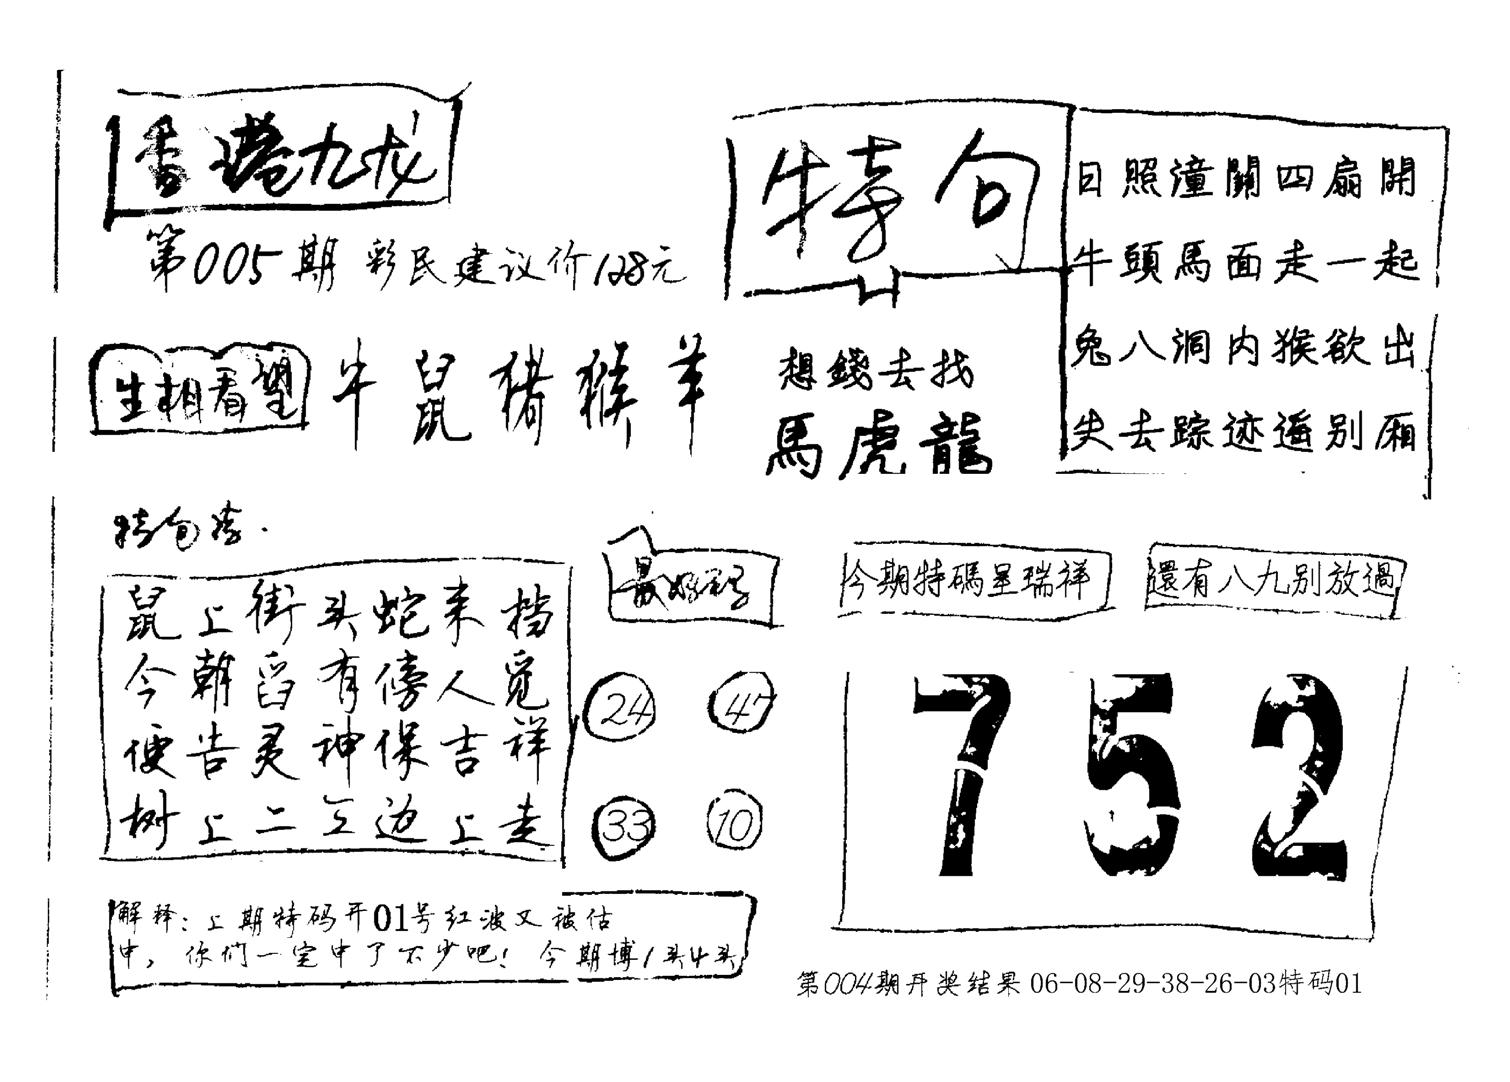 香港九龙
第005期 彩民建议价128元
特句
日照潼關四扇開
牛頭馬面走一起
兔八洞内猴欲出
失去踪迹遍别厢
生相看望 牛鼠猪猴羊
想錢去找
馬虎龍
鼠上街头蛇来挡
今朝留有傍人觅
便告灵神保吉祥
树上二三边上走
最好码
24 47
33 10
今期特碼呈瑞祥
還有八九别放過
752
解释：上期特码开01号红波又被估
中，你们一定中了不少吧！今期博1头4头
第004期开奖结果 06-08-29-38-26-03特码01